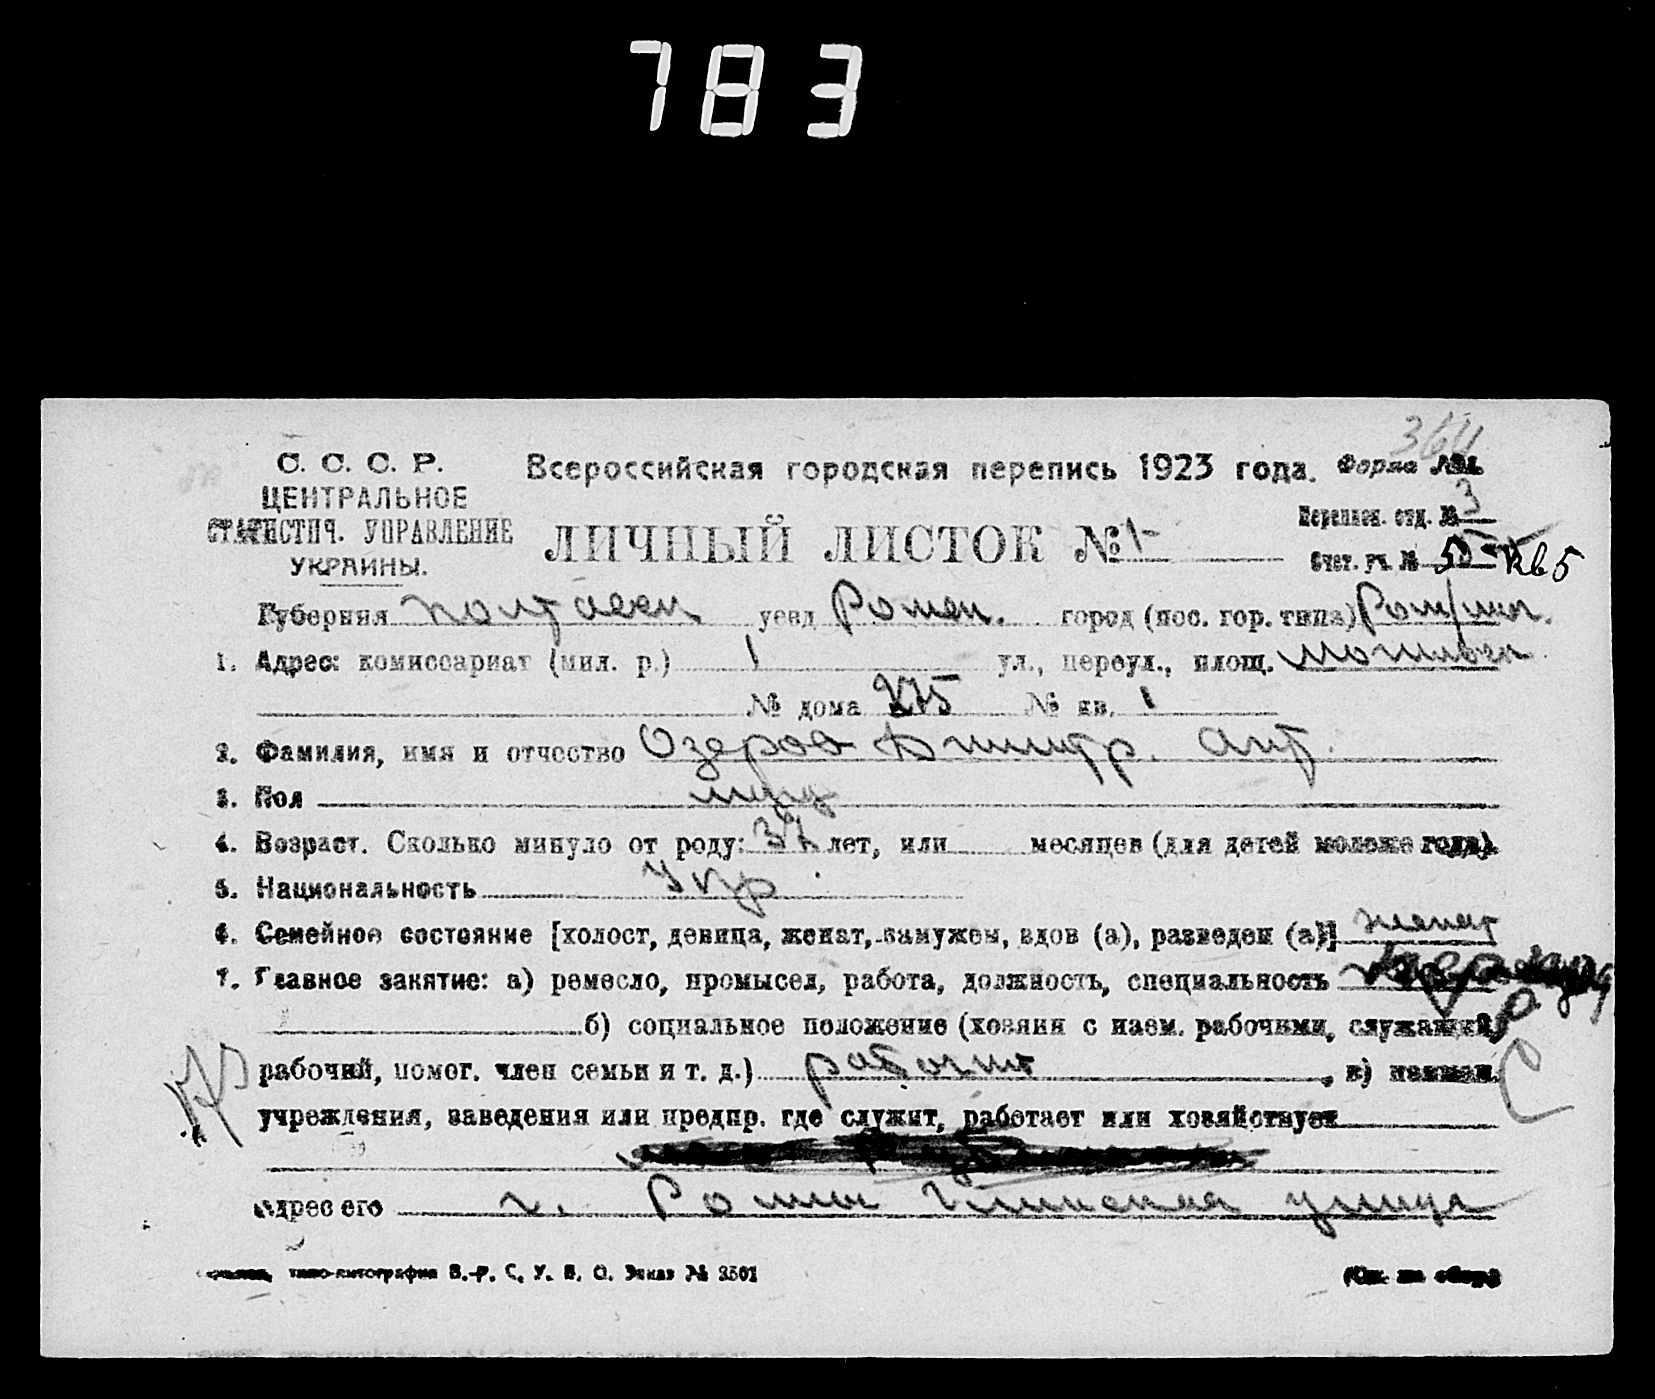 783
364
С. С. С. Р.
ЦЕНТРАЛЬНОЕ
СТАТИСТИЧ. УПРАВЛЕНИЕ
УКРАИНЫ.
Всероссийская городская перепись 1923 года. Форма №
ЛИЧНЫЙ ЛИСТОК № 1
Переписн. отд. № 3
Счет. уч. № 5 кв 5
Губерния Полтавск уезд Ромен. город (пос. гор. типа) Ромны.
1. Адрес: комиссариат (мил. р.) 1 ул., переул., площ.
№ дома 275 № кв. 1
2. Фамилия, имя и отчество Озеров Дмитр. Ант.
3. Пол муж
4. Возраст. Сколько минуло от роду: 37 лет, или месяцев (для детей моложе года).
5. Национальность Укр
6. Семейное состояние [холост, девица, женат, замужем, вдов (а), разведен (а)] женат
7. Главное занятие: а) ремесло, промысел, работа, должность, специальность
б) социальное положение (хозяин с наем. рабочими, служащий,
рабочий, помог. член семьи и т. д.) рабочий, в) назван.
учреждения, заведения или предпр. где служит, работает или хозяйствует
Адрес его г. Ромны улица
типо-литография В.-Р. С. У. В. О. Заказ № 3501
(См. на обор.)